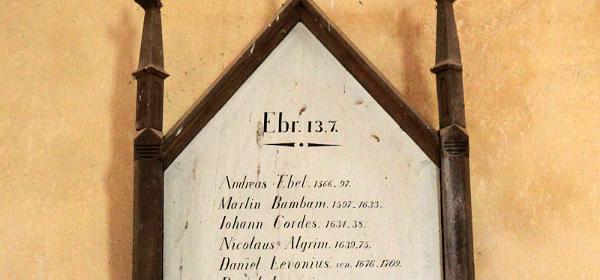 Ebr. 13.7.
Andreas Ebel. 1566-97.
Martin Bambam. 1597-1633.
Iohann Cordes. 1634-38.
Nicolaus Algrim. 1639-75.
Daniel Levonius. sen. 1676-1709.